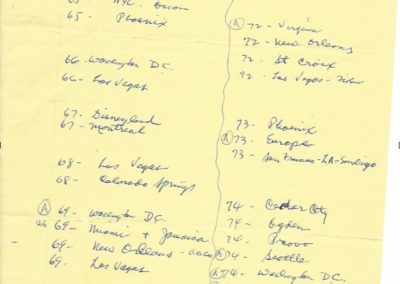 65 - NYC
65 - Phoenix
66 - Washington D.C.
66 - Las Vegas
67 - Disneyland
67 - Montreal
68 - Las Vegas
68 - Colorado Springs
A 69 - Washington D.C.
69 - Miami + Jamaica
69 - New Orleans -
69 - Las Vegas
A 72 - Virginia
72 - New Orleans
72 - St Croix
72 - Las Vegas -
73 - Phoenix
A 73 - Europe
73 - San Francisco - LA - San Diego
74 - Cedar City
74 - Ogden
74 - Provo
A 74 - Seattle
A 74 - Washington D.C.